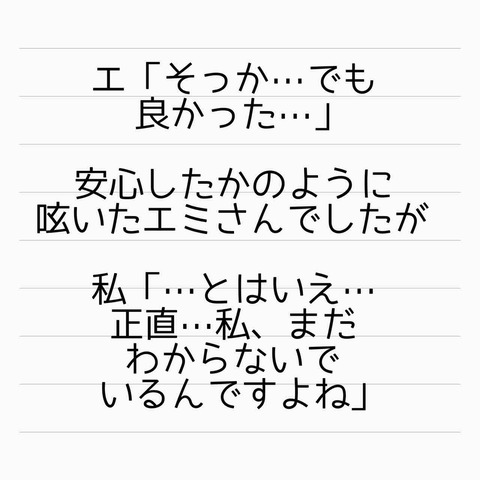 エ「そっか…でも
良かった…」
安心したかのように
呟いたエミさんでしたが
私「…とはいえ…
正直…私、まだ
わからないで
いるんですよね」